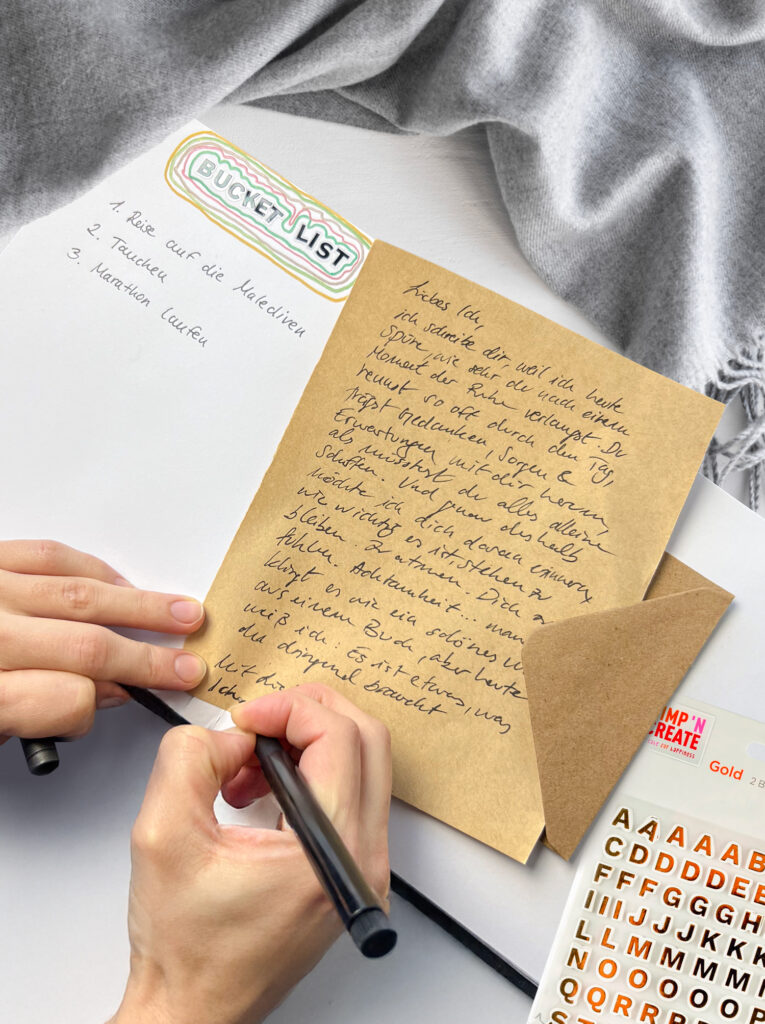 BUCKET LIST
1. Reise auf die Malediven
2. Tauchen
3. Marathon laufen
Liebes Ich,
ich schreibe dir weil ich heute
Spüre, wie sehr du nach einem
Moment der Ruhe verlangst. Du
rennst so oft durch den Tag,
trägst Gedanken, Sorgen &
Erwartungen mit dir herum,
als müsstest du alles alleine
schaffen. Und genau deshalb
möchte ich dich daran erinnern
wie wichtig es ist, stehen zu
bleiben. Zu atmen. Dich zu
fühlen. Achtsamkeit... man
klingt es wie ein schönes
aus einem Buch, aber heute
weiß ich: Es ist etwas, was
du dringend brauchst
Mit
Ich
IMP 'N
CREATE
Gold
A A A A A B
C D D D D E E
F F F G G G H
I I I J J J K K K
L L L M M M M M
N O O O O O O P
Q Q R R R
S